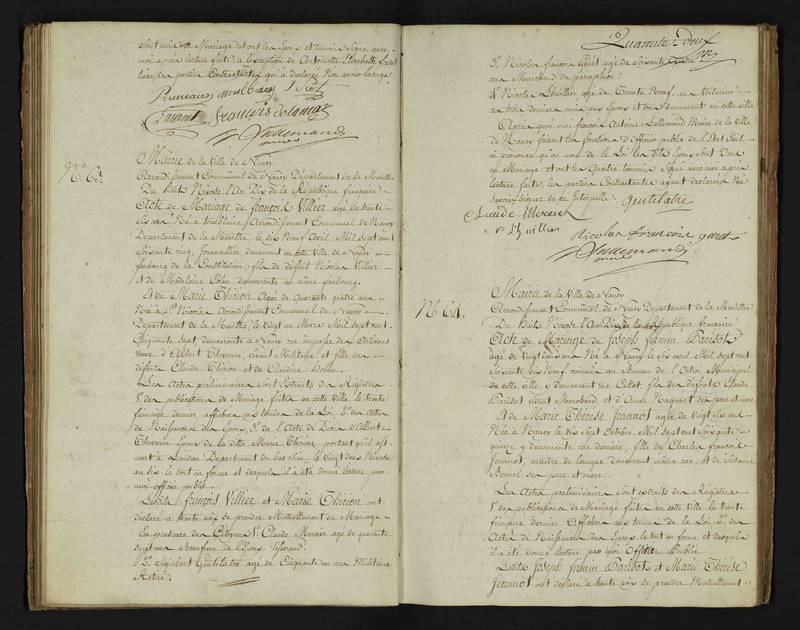 moi après lecture faite, à l'exception de Antoinette Elisabeth
François Delamar
Lallemand
N°. 63.
Mairie de la Ville de Nancy.
Arrondissement Communal de Nancy Département de la Meurthe
Du huit Nivose l'An Dix de la République française
Acte de Mariage de françois Villier agé de trente
six ans, Né à tomblaine, Arrondissement Communal de Nancy,
Département de la Meurthe, le dix Neuf Avril Mil sept cent
soixante cinq, Journallier, demeurant en cette Ville de Nancy
faubourg de la Constitution; fils de défunt Nicolas Villier
et de Madelaine demeurante au même faubourg.
Et de Marie Thirion Agée de Quarante quatre ans
Née à St. Nicolas Arrondissement Communal de Nancy
Département de la Meurthe, le vingt un Mars Mil sept cent
Cinquante sept, demeurante à Nancy rue
veuve d'Albert Thouvenin, vivant Militaire et fille des
défunts Claude Thirion et de Claudine
Les Actes préliminaires sont Extraits des Registres
1°. des publications de Mariage faites en cette Ville, le trente
frimaire dernier, affichées aux termes de la Loi. 2°. des Actes
de Naissances des Epoux, 3°. de l'Acte de Décès d'Albert
Thouvenin Epoux de la ditte Marie Thirion, portant qu'il est
mort à Landau Département du bas rhin, le vingt deux Nivose
an dix. le tout en forme et desquels il a été donné lecture par
moi officier public.
Lesdits françois Villier et Marie Thirion ont
déclaré à haute voix se prendre Mutuellement en Mariage
En presence des Citoyens 1°. Claude Mercier agé de quarante
sept ans
2°. Sigisbert Gentilatre agé de Cinquante un ans Militaire
Retiré.
Quarante deux
3°. Nicolas françois Géniet agé de soixante quatre
ans Marchand de parapluie
4°. Nicolas Lhuillier, agé de Trente Neuf ans Voiturier
ces trois derniers amis aux Epoux et tous demeurant en cette ville
Après quoi moi françois Antoine Lallemand Maire de la Ville
de Nancy faisant les fonctions d'Officier public de l'Etat Civil
ai prononcé qu'au nom de la Loi lesdits Epoux sont Unis
en Mariage et ont les Quatre temoins signé avec moi après
lecture faite, les parties Contractantes ayant déclaré ne
savoir signer de ce Interpellé. Gentilatre
Claude Mercier
n Lhuillier
Nicolas françois
Lallemand
N° 64.
Mairie de la Ville de Nancy
Arrondissement Communal de Nancy Département de la Meurthe
Du huit Nivose l'An Dix de la République française
Acte de Mariage de Joseph Firmin Parisot
agé de vingt deux ans Né à Nancy le six avril Mil sept cent
soixante dix Neuf, commis au Bureau de l'Octroi Municipal
de cette ville y demeurant rue Callot, fils des défunts Claude
Parisot vivant Marchand et d'Anne
Et de Marie Thérèse Jeannot agée de Vingt six ans
Née à Nancy le dix sept Octobre Mil sept cent soixante
quinze y demeurante rue derniere, fille de Charles françois
Jeannot, maitre de langue demeurant même rue, et de Susanne
ses père et mere.
Les Actes préliminaires sont extraits des Registres
1°. des publications de Mariage faites en cette Ville le trente
frimaire dernier Affichées aux termes de la Loi 2°. des
Actes de Naissances des Epoux le tout en forme et desquels
il a été donné lecture par moi Officier Public
Lesdits Joseph Firmin Parisot et Marie Thérèse
Jeannot ont déclaré à haute voix se prendre Mutuellement